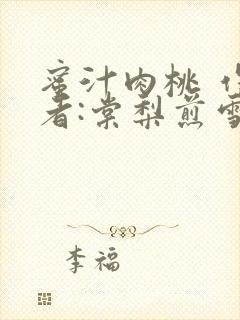 蜜汁肉桃 作
者:棠梨煎雪
李福